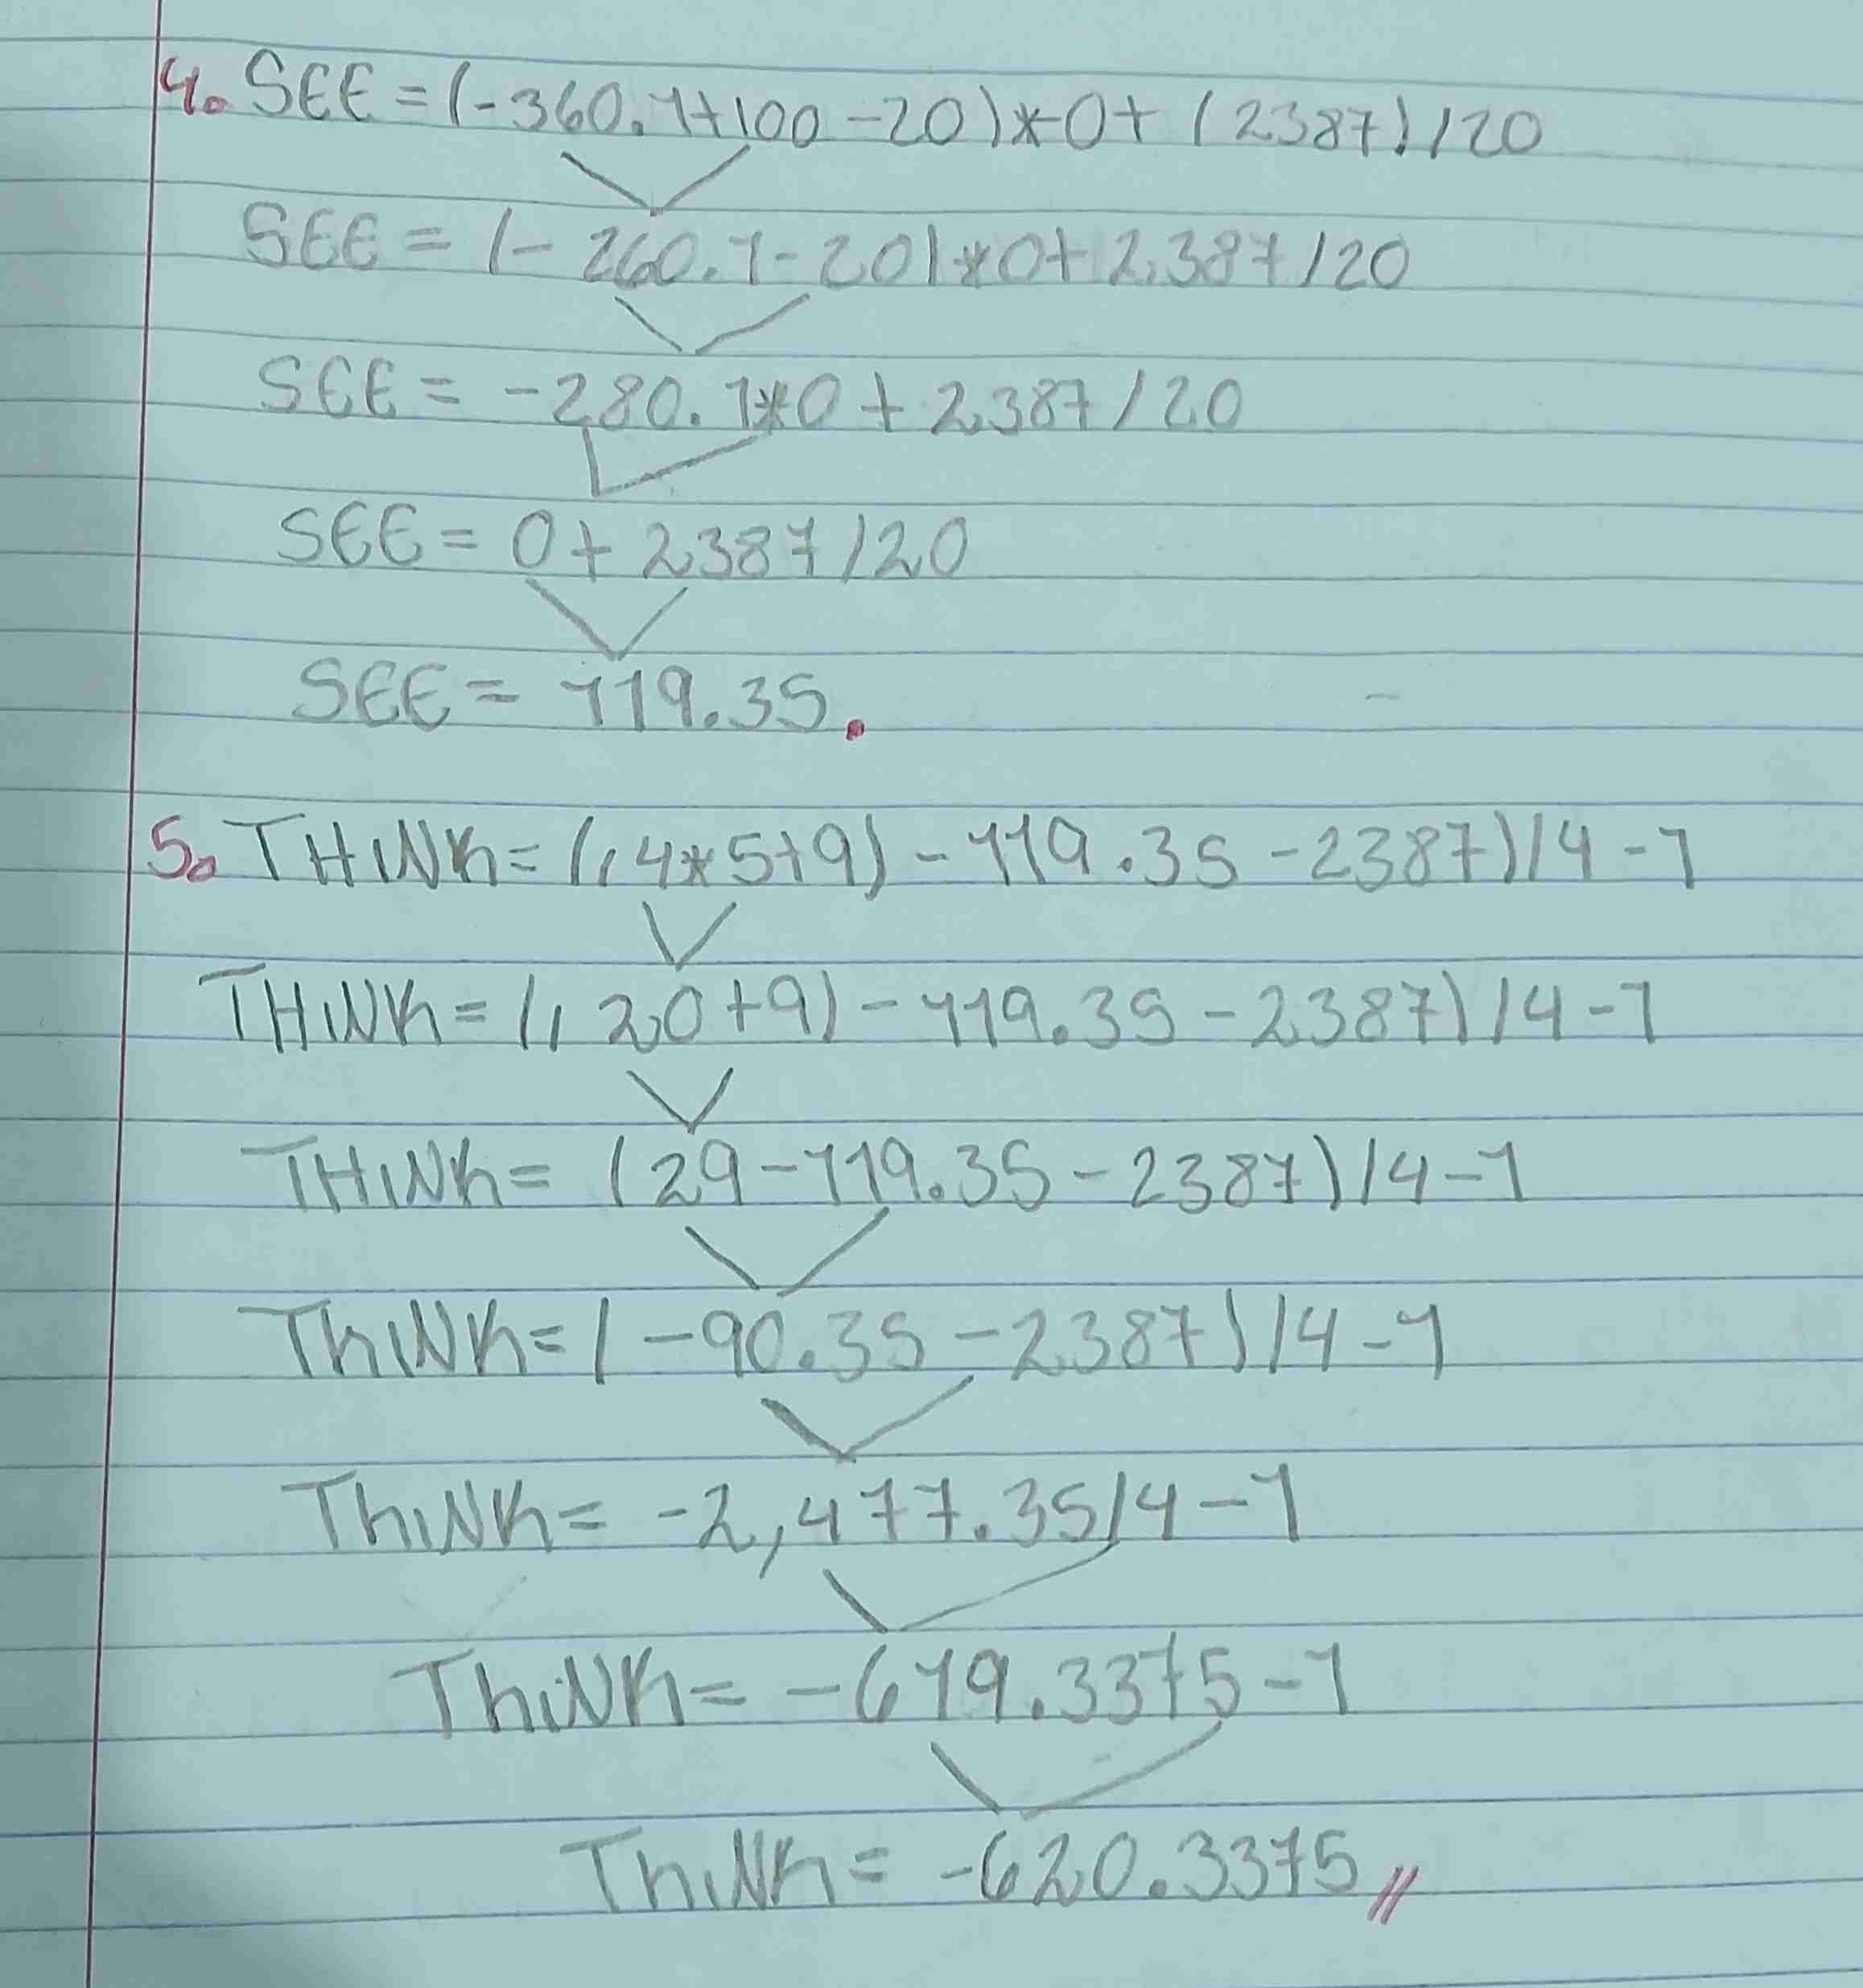 4. SEE = (-360.1+100-20)*0+(2387)/20
SEE = (-260.1-20)*0+2387/20
SEE = -280.1*0+2387/20
SEE = 0+2387/20
SEE = 119.35.
5. THINK = ((4*5+9)-119.35-2387)/4-1
THINK = ((20+9)-119.35-2387)/4-1
THINK = (29-119.35-2387)/4-1
ThiNK = (-90.35-2387)/4-1
ThiNK = -2,477.35/4-1
ThiNK = -619.3375-1
ThiNK = -620.3375//